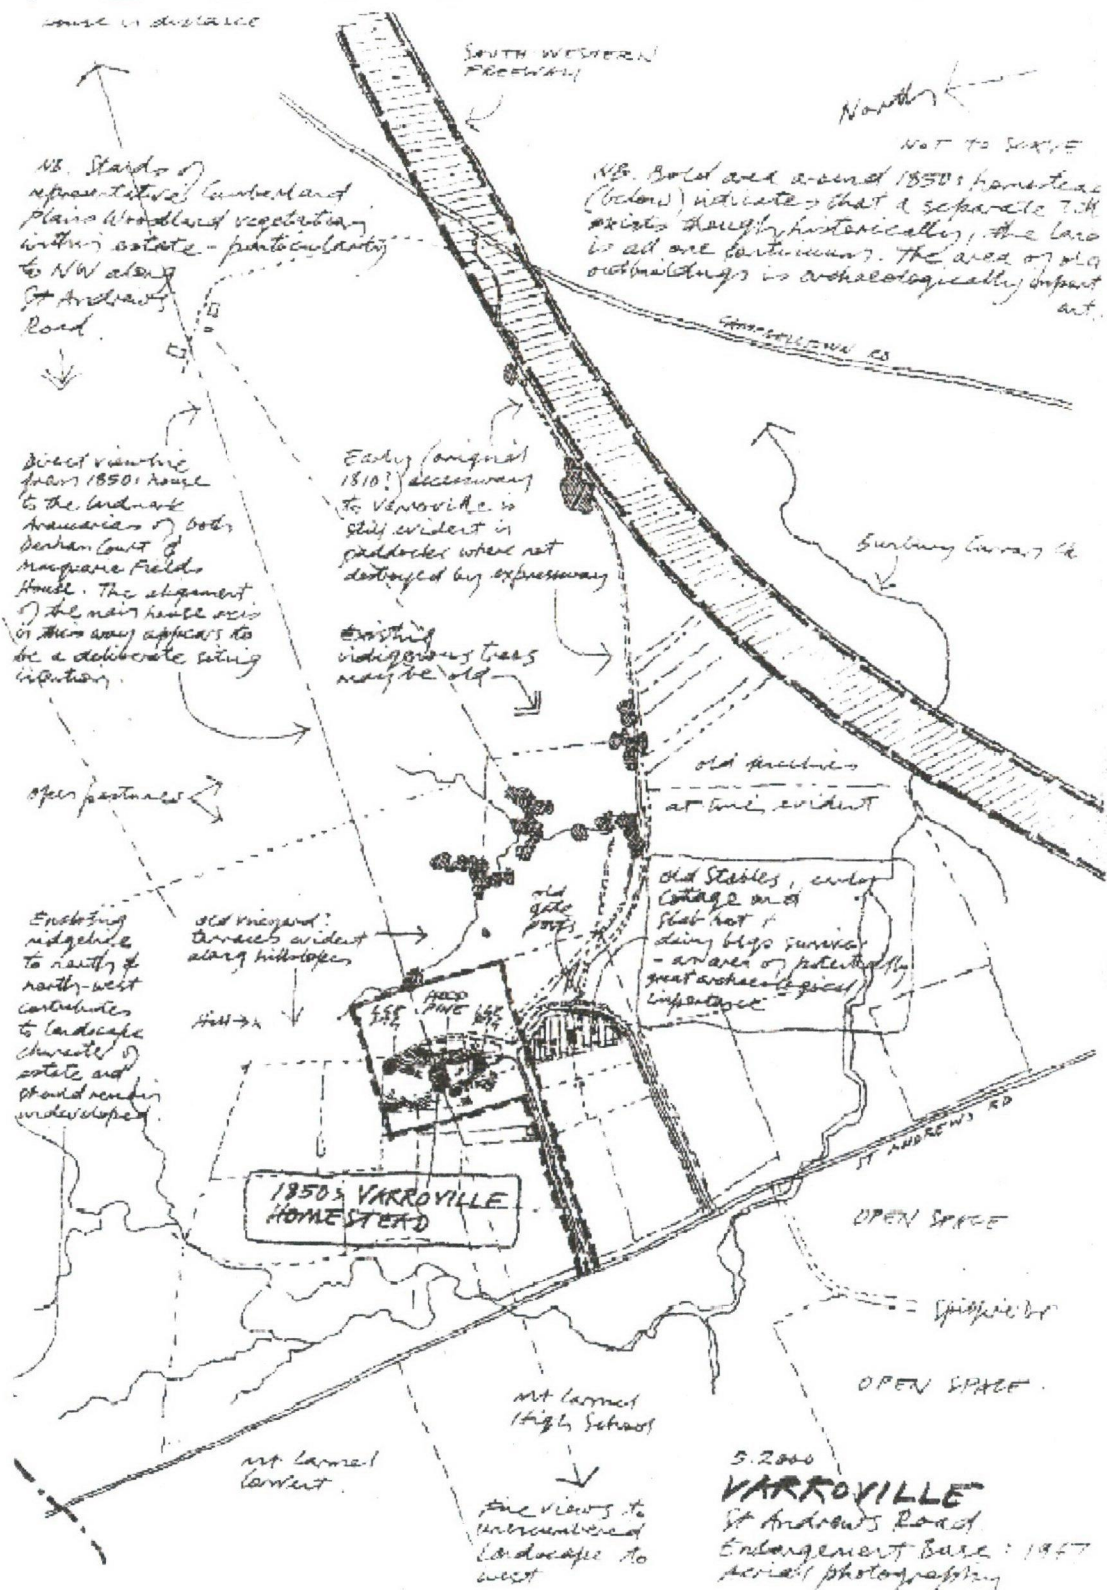 house in distance
SOUTH WESTERN
FREEWAY
North
NOT TO SCALE
NB. Stands of
representative Cumberland
Plains Woodland vegetation
within estate - particularly
to NW along
St Andrews
Road.
NB. Bold area around 1850s homestead
(below) indicates that a separate
exists though historically, the land
is all one continuum. The area of old
outbuildings is archaeologically import
ant.
CAMPBELLTOWN RD
Direct viewline
from 1850s house
to the landmark
Araucarias of both
Denham Court &
Macquarie Fields
House. The alignment
of the main house axis
in this way appears to
be a deliberate siting
intention.
Early (original
1810?) accessway
to Varroville is
still evident in
paddocks where not
destroyed by expressway
Bunbury Curran Ck
Existing
indigenous trees
may be old
open pastures
old fencelines
at times evident
Enclosing
ridgeline
to north &
north-west
contributes
to landscape
character of
estate and
should remain
undeveloped.
old vineyard?
terraces evident
along hillslopes
old
gate
posts
old Stables, early
cottage and
slab hut +
dairy bldgs survive
- an area of potentially
great archaeological
importance
HOOP
PINE
1850s VARROVILLE
HOMESTEAD
ST ANDREWS RD
OPEN SPACE
Spitfire Dr
OPEN SPACE.
Mt Carmel
High School
Mt Carmel
Convent.
Fine views to
unencumbered
landscape to
west
5.2000
VARROVILLE
St Andrews Road
Enlargement Base: 1947
aerial photography